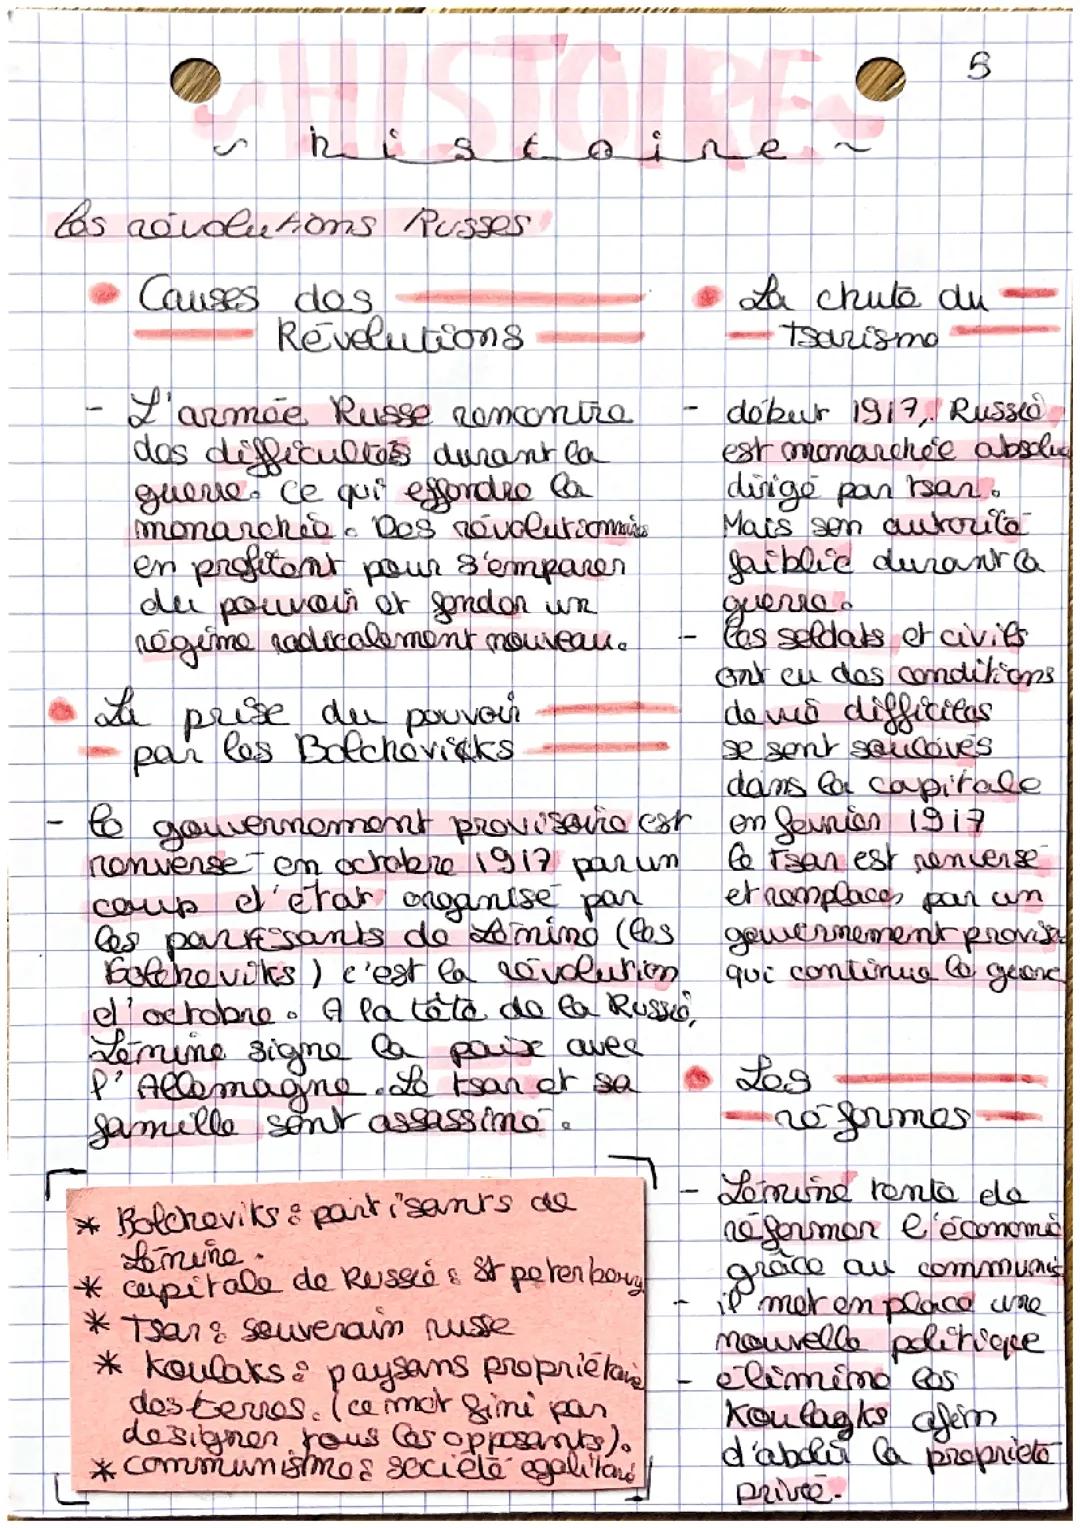 HISTOIRE
~ histoire ~
Les révolutions Russes
Causes des
Révolutions
- L'armée Russe rencontre
des difficultés durant la
guerre. Ce qui effondre la
monarchie. Des révolutionnaires
en profitent pour s'emparer
du pouvoir et fonder un
régime radicalement nouveau.
La prise du pouvoir
par les Bolcheviks
- le gouvernement provisoire est
renversé en octobre 1917 par un
coup d'état organisé par
les partisants de Lénine (les
bolcheviks) c'est la révolution
d'octobre. A la tête de la Russie,
Lénine signe la paix avec
l'Allemagne. Le tsar et sa
famille sont assassiné.
* Bolcheviks : partisants de
Lénine.
* capitale de Russie : St petersbourg
* Tsar : souverain russe
* Koulaks : paysans propriétaire
des terres. (ce mot fini par
designer tous les opposants).
* communisme : société egalitaire
La chute du
Tsarisme
- début 1917, Russie
est monarchée absolue
dirigé par tsar.
Mais son autorité
faiblie durant la
guerre.
- les soldats et civils
ont eu des conditions
de vie difficiles
se sont soulevés
dans la capitale
en fevrier 1917
le tsar est renversé
et remplacer par un
gouvernement provis
qui continue la guerre
Les
réformes
- Lénine tente de
réformer l'économie
grâce au communis
- il met en place une
nouvelle politique
- élimine les
Koulagks afin
d'abolir la propriété
privée.